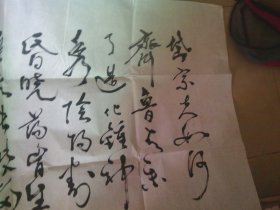 岱宗夫如何
齊魯青未
了造化鍾神
秀陰陽割
昏曉蕩胷生